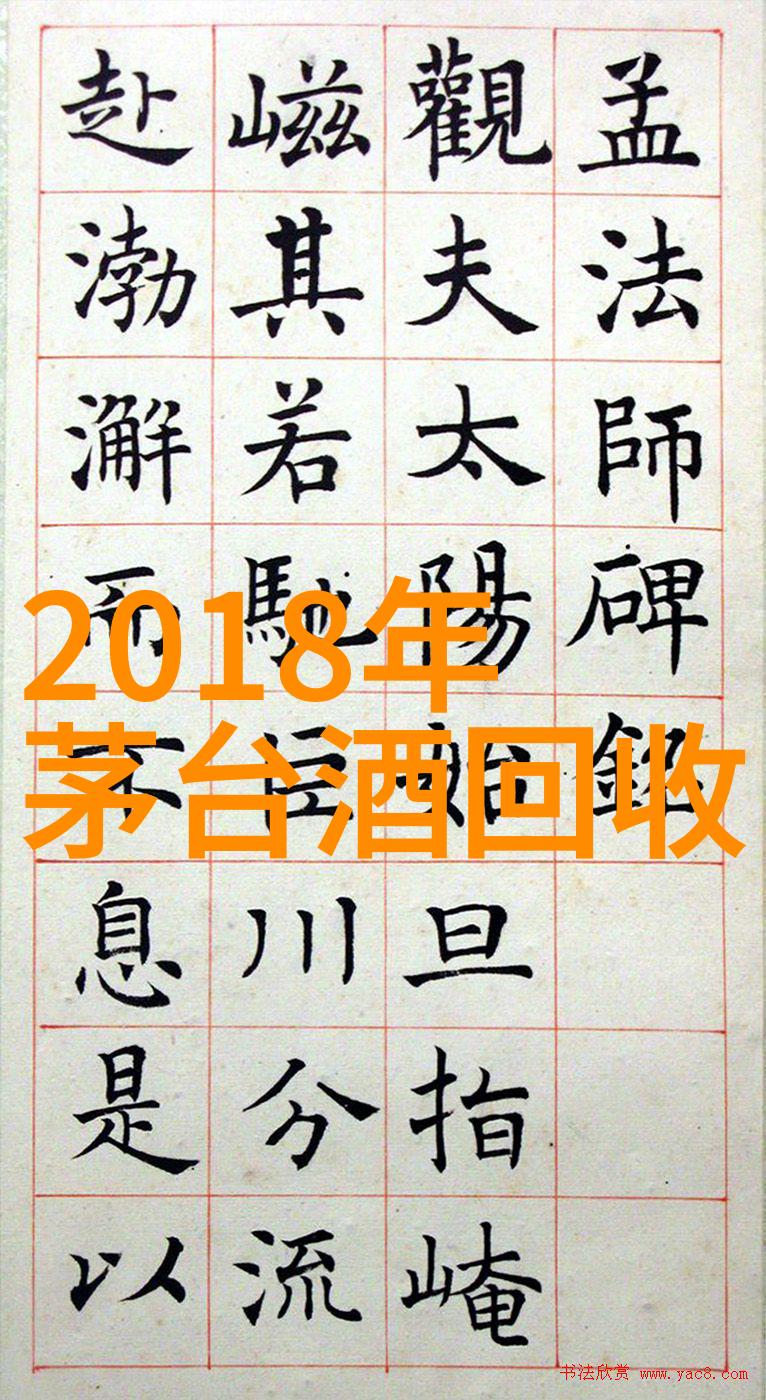 孟法師碑銘
觀夫太陽始旦指崦
嵫其若馳巨川分流
赴渤澥而不息是以
2018年
茅台酒回收
书法欣赏 www.yac8.com